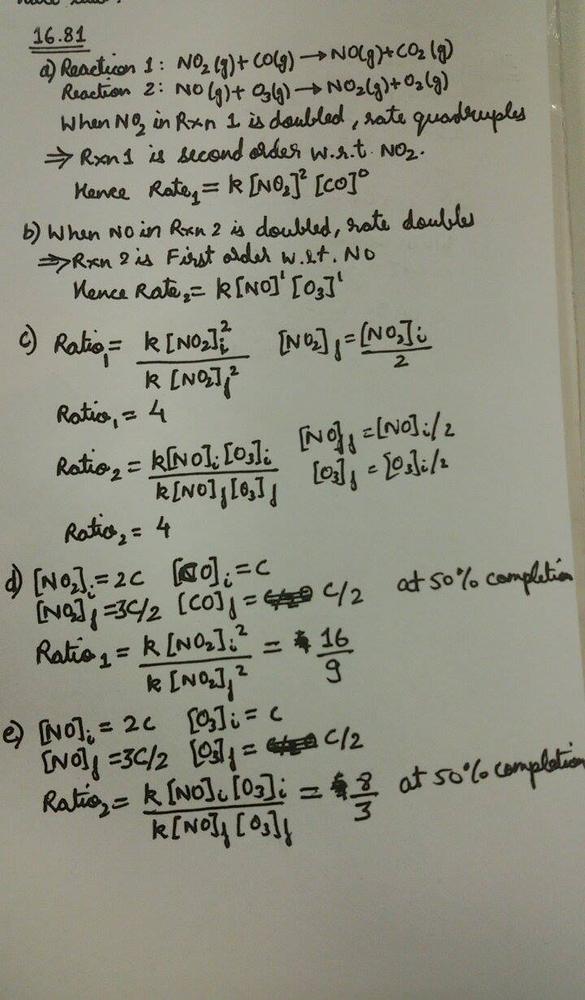 16.81
a) Reaction 1: NO₂(g)+CO(g)→NO(g)+CO₂(g)
Reaction 2: NO(g)+O₃(g)→NO₂(g)+O₂(g)
When NO₂ in Rxn 1 is doubled, rate quadruples
⇒ Rxn 1 is second order w.r.t. NO₂.
Hence Rate₁ = k[NO₂]²[CO]⁰
b) When NO in Rxn 2 is doubled, rate doubles
⇒ Rxn 2 is First order w.r.t. NO
Hence Rate₂ = k[NO]¹[O₃]¹
c) Ratio₁ = k[NO₂]ᵢ² / k[NO₂]f² [NO₂]f = [NO₂]ᵢ / 2
Ratio₁ = 4
Ratio₂ = k[NO]ᵢ[O₃]ᵢ / k[NO]f[O₃]f [NO]f = [NO]ᵢ/2
[O₃]f = [O₃]ᵢ/2
Ratio₂ = 4
d) [NO₂]ᵢ = 2C [CO]ᵢ = C
[NO₂]f = 3C/2 [CO]f = C/2 at 50% completion
Ratio₁ = k[NO₂]ᵢ² / k[NO₂]f² = 16/9
e) [NO]ᵢ = 2C [O₃]ᵢ = C
[NO]f = 3C/2 [O₃]f = C/2
Ratio₂ = k[NO]ᵢ[O₃]ᵢ / k[NO]f[O₃]f = 8/3 at 50% completion